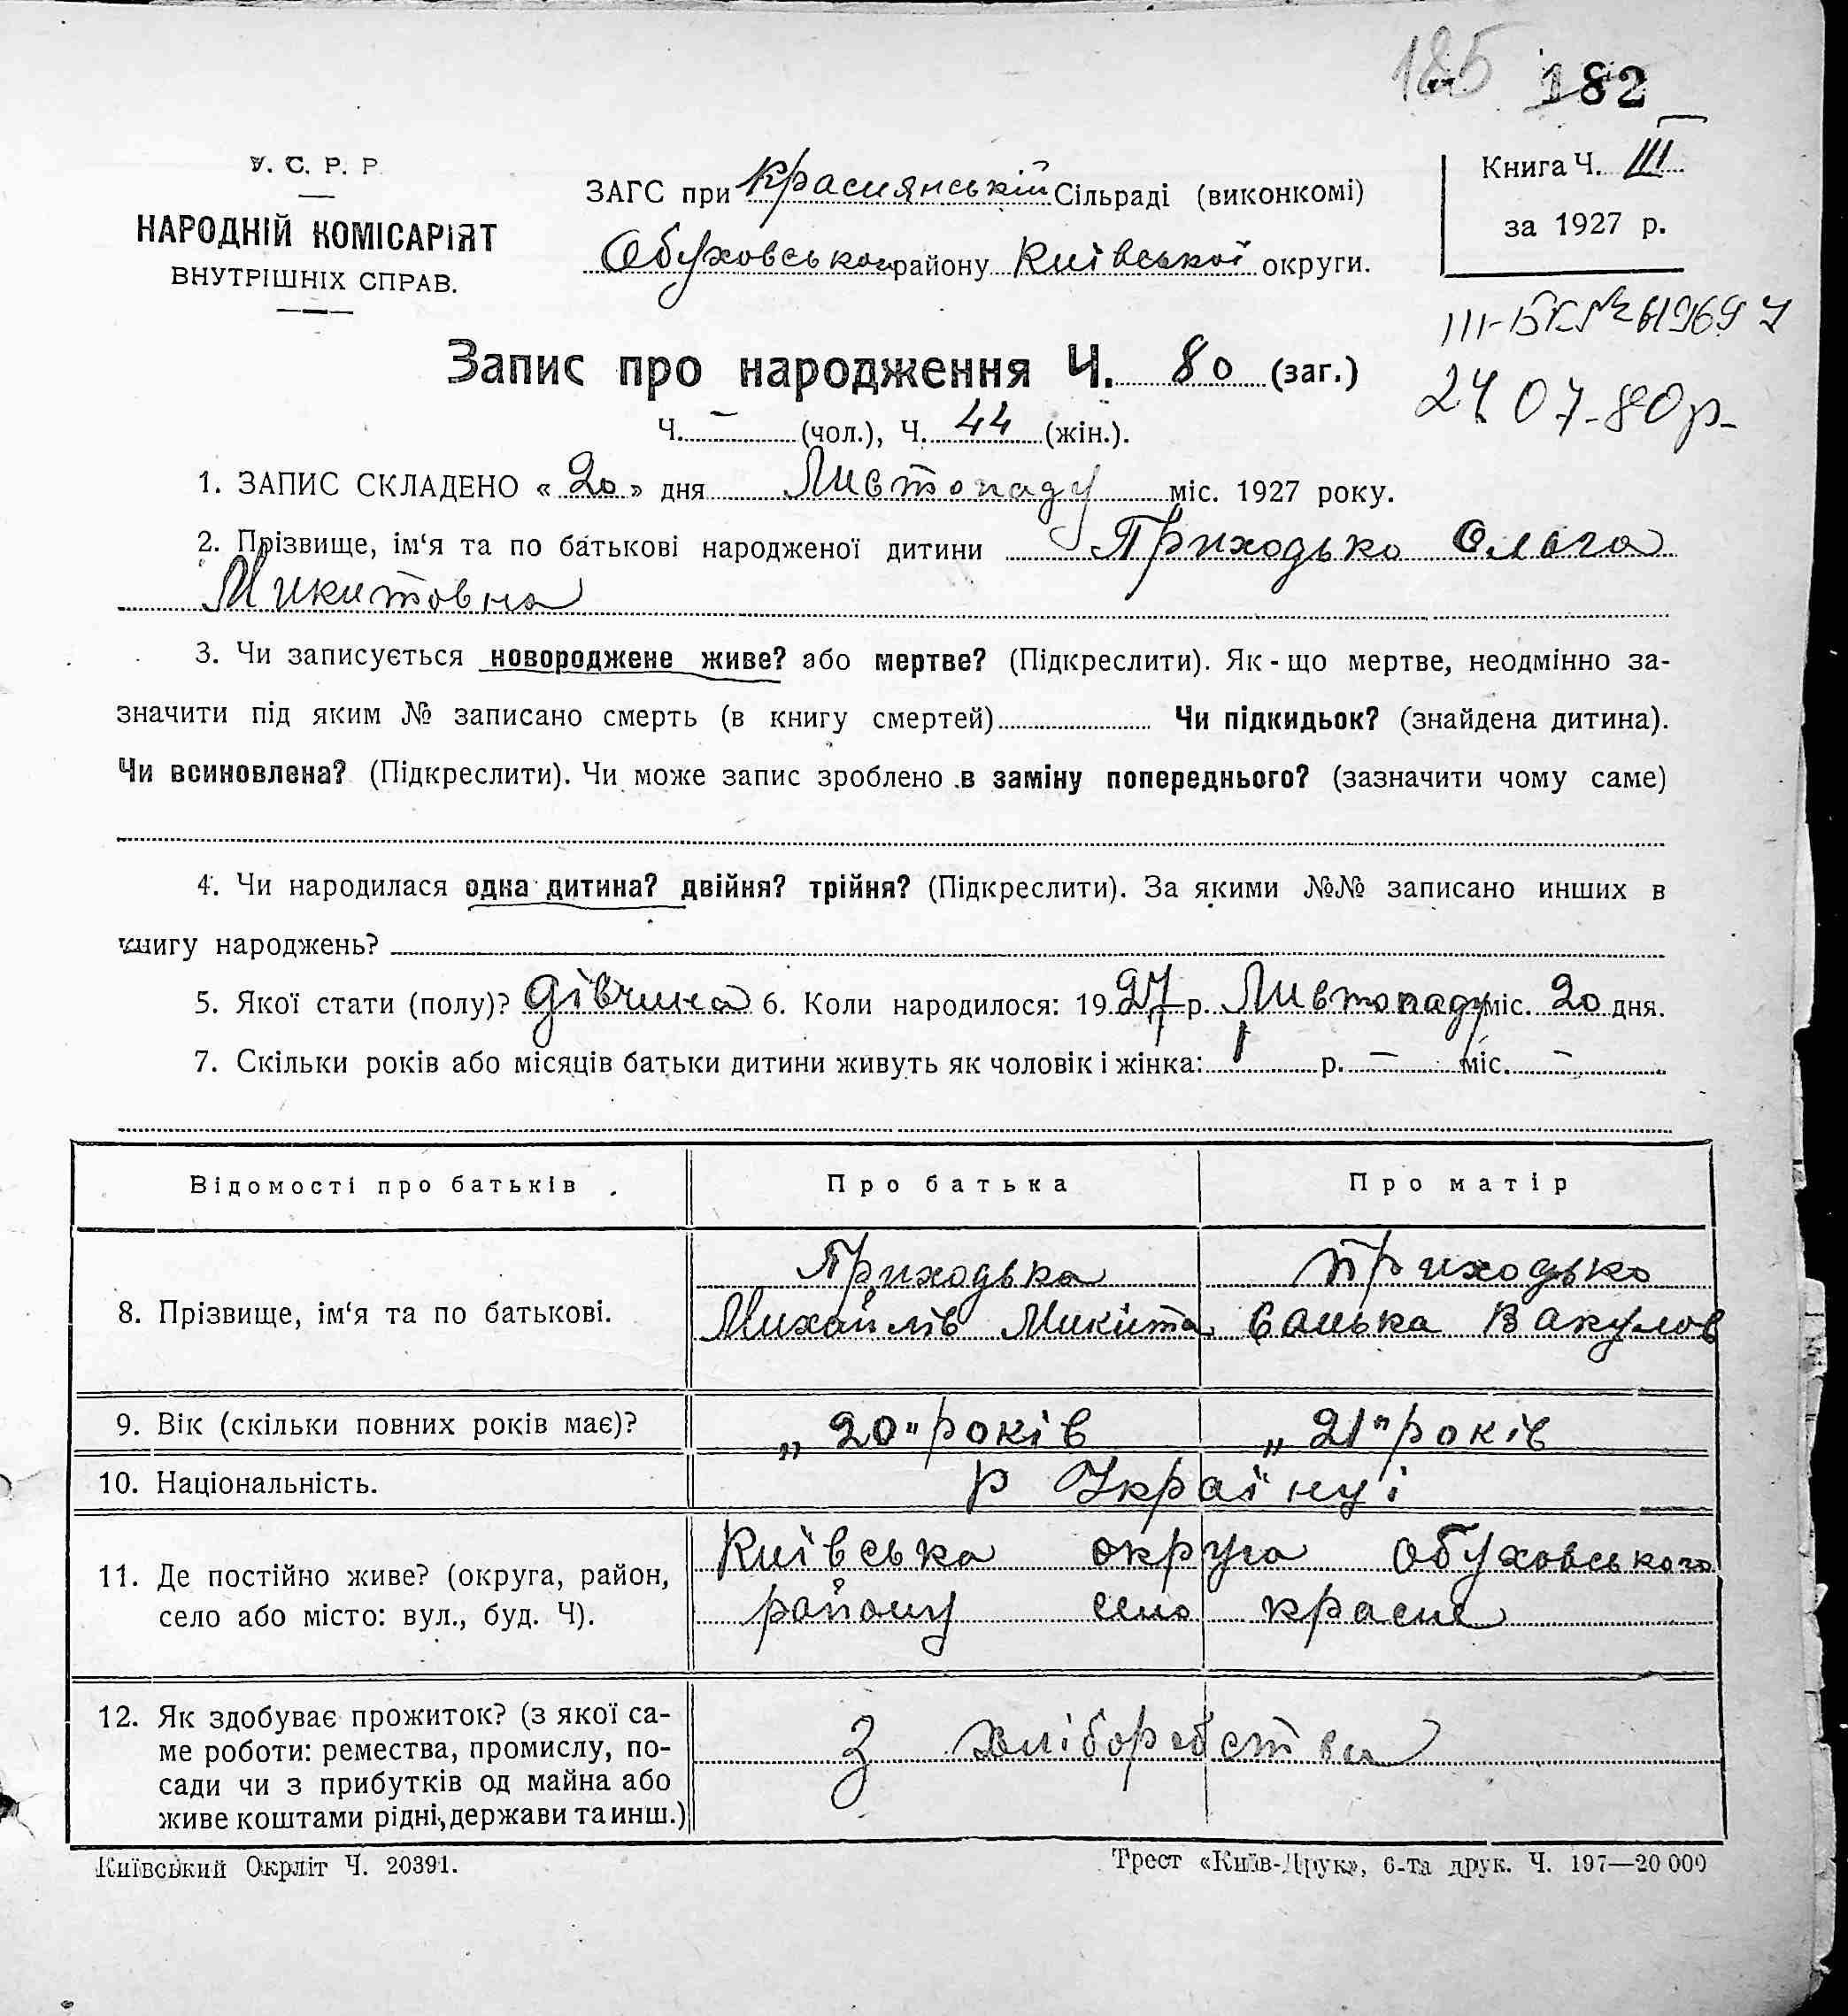 185 182
У. С. Р. Р.
НАРОДНІЙ КОМІСАРІЯТ
ВНУТРІШНІХ СПРАВ.
ЗАГС при Краснянській Сільраді (виконкомі)
Обуховського району Київської округи.
Книга Ч. III
за 1927 р.
24 07-80р-
Запис про народження Ч. 80 (заг.)
Ч. — (чол.), Ч. 44 (жін.).
1. ЗАПИС СКЛАДЕНО « 20 » дня Листопаду міс. 1927 року.
2. Прізвище, ім‘я та по батькові народженої дитини Приходько Ольга
Микитовна
3. Чи записується новороджене живе? або мертве? (Підкреслити). Як-що мертве, неодмінно за-
значити під яким № записано смерть (в книгу смертей) Чи підкидьок? (знайдена дитина).
Чи всиновлена? (Підкреслити). Чи може запис зроблено в заміну попереднього? (зазначити чому саме)
4. Чи народилася одна дитина? двійня? трійня? (Підкреслити). За якими №№ записано инших в
книгу народжень?
5. Якої стати (полу)? дівчина 6. Коли народилося: 1927 р. Листопаду міс. 20 дня.
7. Скільки років або місяців батьки дитини живуть як чоловік і жінка: 1 р. — міс. —
Відомості про батьків Про батька Про матір
8. Прізвище, ім‘я та по батькові.
Приходька Приходько
Михайлів Микита Санька Вакулов
9. Вік (скільки повних років має)? „20" років „21" років
10. Національність. Р Українці
11. Де постійно живе? (округа, район,
село або місто: вул., буд. Ч).
Київська округа Обуховського
району село красне
12. Як здобуває прожиток? (з якої са-
ме роботи: ремества, промислу, по-
сади чи з прибутків од майна або
живе коштами рідні, держави та инш.)
З хліборобства
Київський Окрліт Ч. 20391.
Трест «Київ-Друк», 6-та друк. Ч. 197—20 000